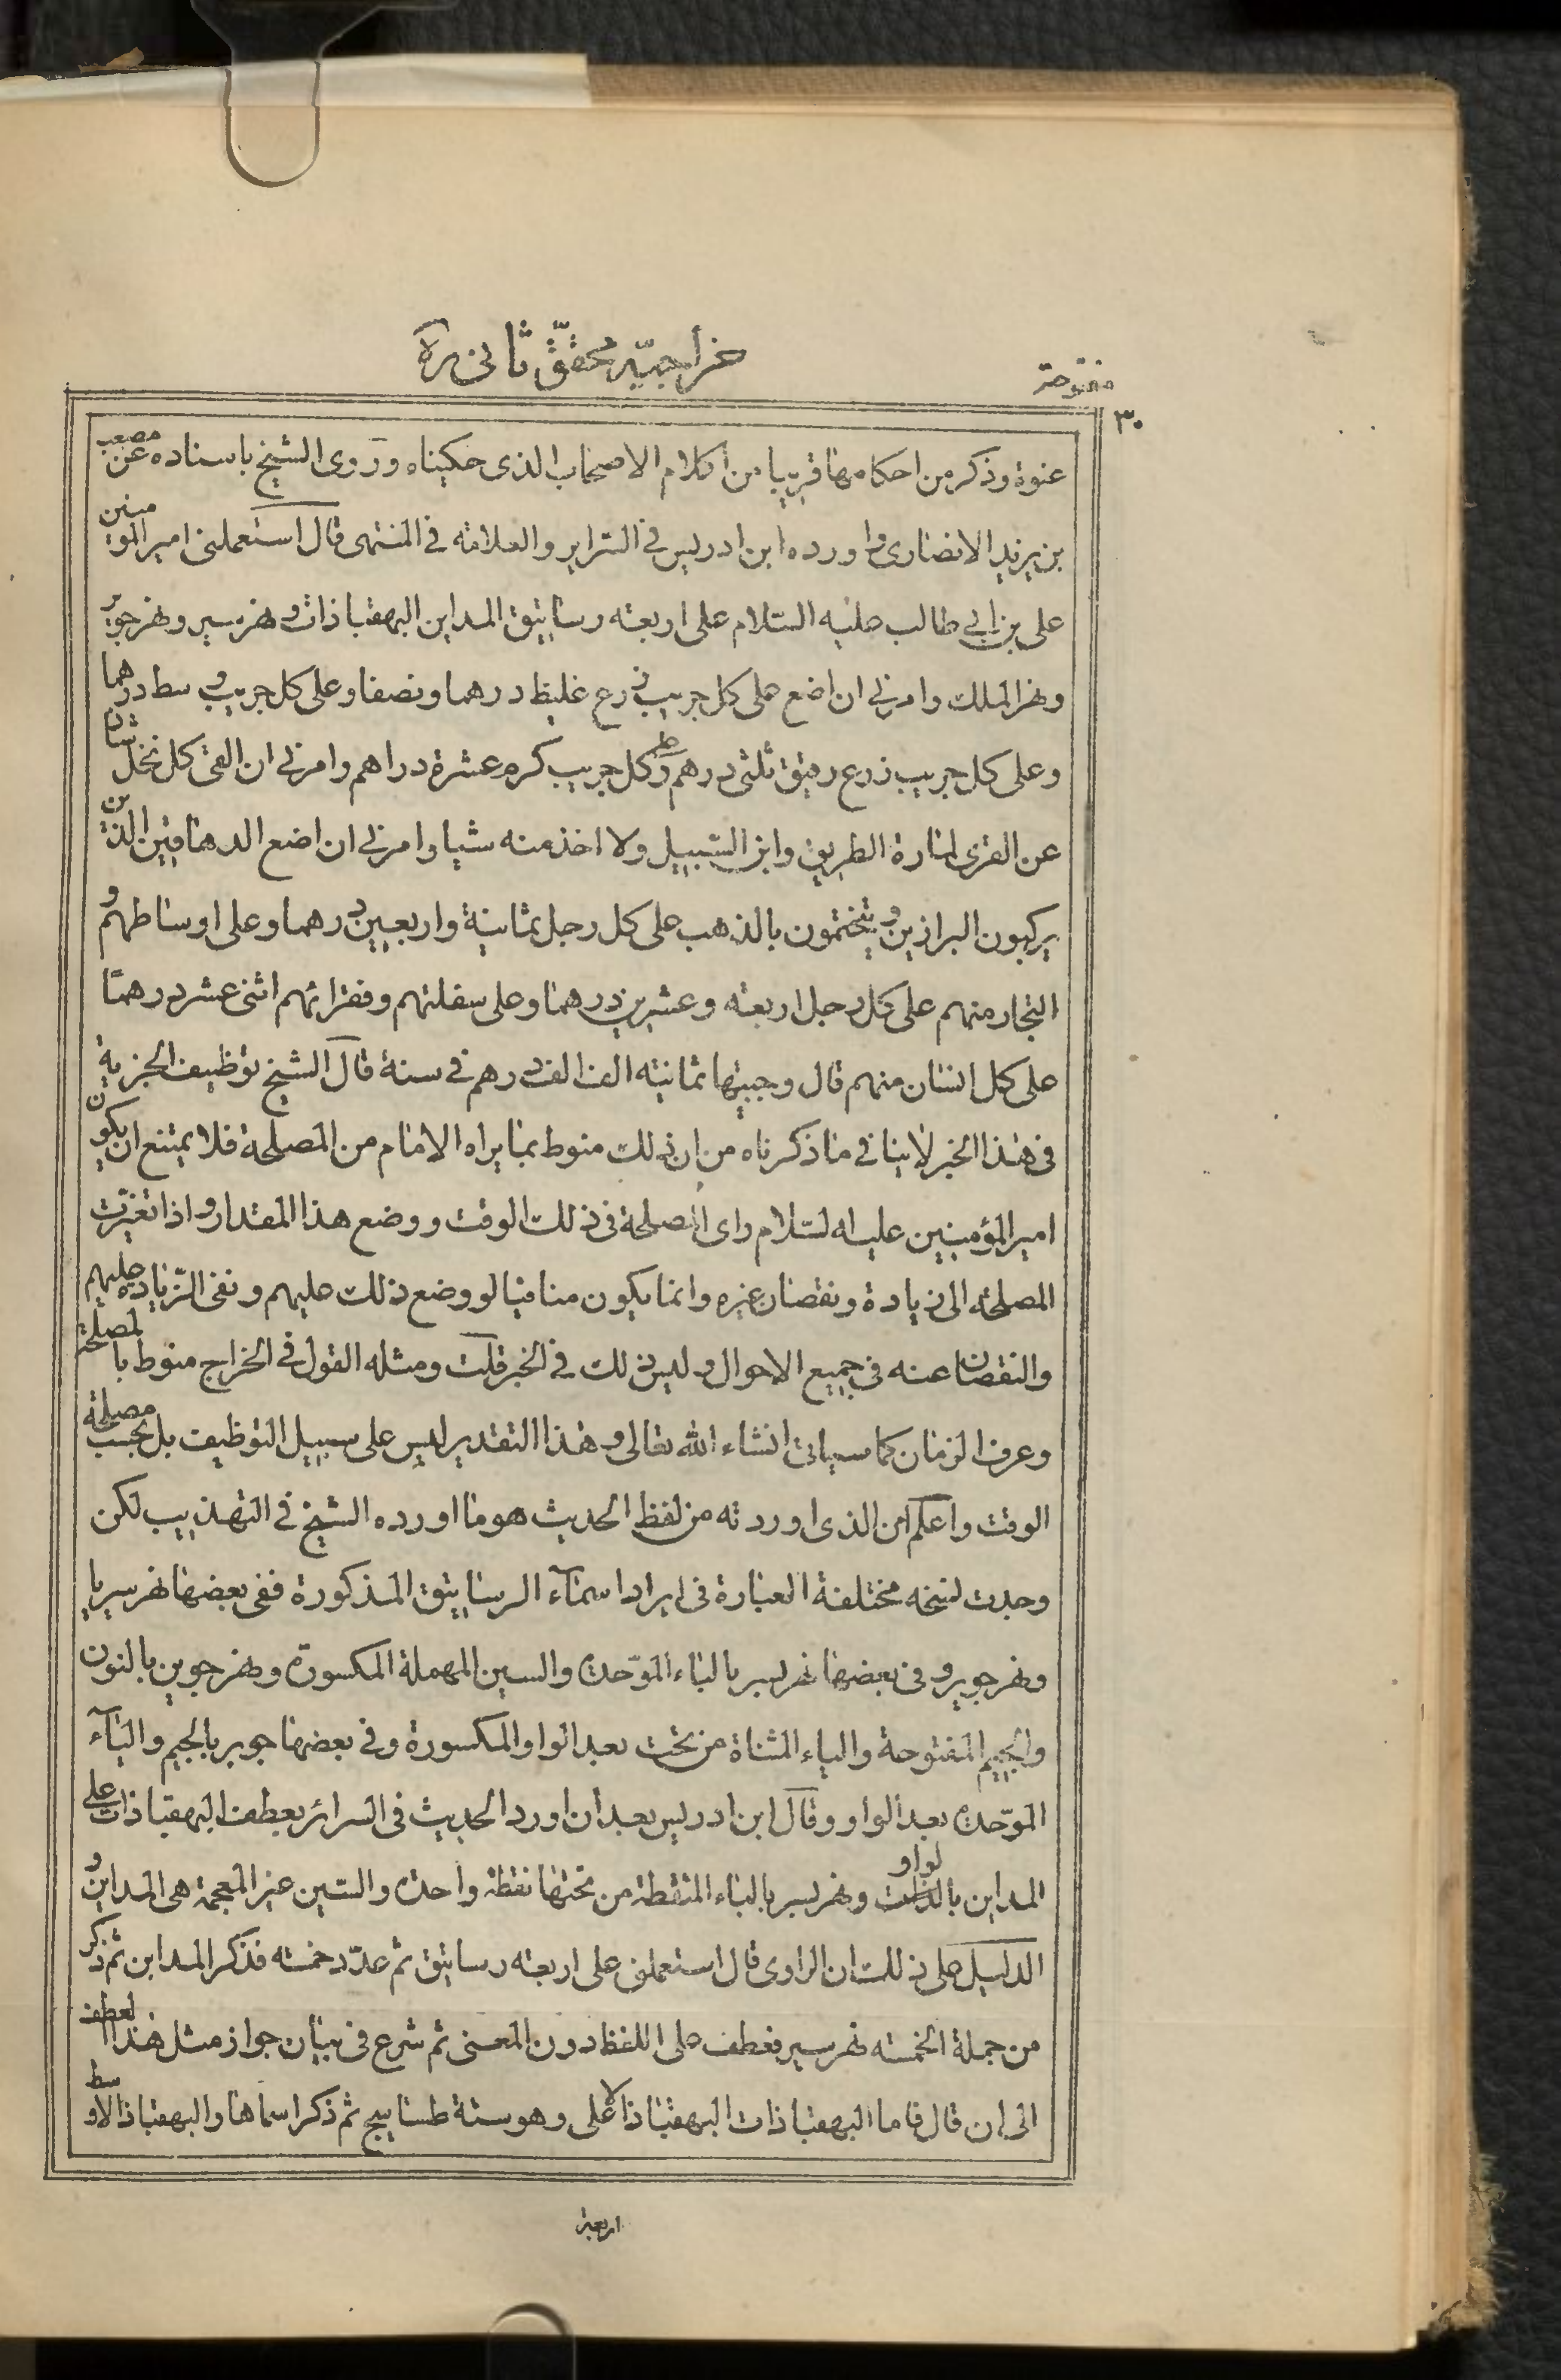 خراجیّه محقّق ثانی ره
مفتوحة
٣٠
عنوة وذكر من احكامها قريبا من كلام الاصحاب الذى حكيناه وروى الشيخ باسناده عن مصعب
بن يزيد الانصارى واورده ابن ادريس فى السراير والعلامة فى المنتهى قال استعملنى امير المومنين
على بن ابى طالب عليه السلام على اربعة رساتيق المداين البهقباذات ونهر سير ونهر جوير
ونهر الملك وامرنى ان اضع على كل جريب زرع غليظ درهما ونصفا وعلى كل جريب وسط درهما
وعلى كل جريب زرع رقيق ثلثى درهم وكل جريب كرم عشرة دراهم وامرنى ان القى كل نخل شان
عن القرى لمارة الطريق وابن السبيل ولا اخذ منه شيا وامرنى ان اضع الدهاقين الذين
يركبون البراذين ويتختمون بالذهب على كل رجل ثمانية واربعين درهما وعلى اوساطهم و
التجار منهم على كل رجل اربعة وعشرين درهما وعلى سفلتهم وفقرائهم اثنى عشر درهمًا
على كل انسان منهم قال وجبيتها ثمانية الف الف درهم فى سنة قال الشيخ توظيف الجزية
فى هذا الخبر لاينافى ما ذكرناه من ان ذلك منوط بما يراه الامام من المصلحة فلا يمتنع ان يكون
امير المؤمنين عليه السلام راى المصلحة فى ذلك الوقت ووضع هذا المقدار واذا تغيرت
المصلحة الى زيادة ونقصان غيره وانما يكون منافيا لو وضع ذلك عليهم ونفى الزيادة عليهم
والنقصان عنه فى جميع الاحوال وليس ذلك فى الخبر قلت ومثله القول فى الخراج منوط بالمصلحة
وعرف الزمان كما سياتى انشاء الله تعالى وهذا التقدير ليس على سبيل التوظيف بل بحسب مصلحة
الوقت واعلم ان الذى اوردته من لفظ الحديث هو ما اورده الشيخ فى التهذيب لكن
وجدت نسخه مختلفة العبارة فى ايراد اسماء الرساتيق المذكورة ففى بعضها نهر سيريا
ونهر جوير وفى بعضها نهر بسير بالباء الموحدة والسين المهملة المكسورة ونهر جوين بالنون
والجيم المفتوحة والياء المثناة من تحت بعد الواو المكسورة وفى بعضها جوبر بالجيم والباء
الموحدة بعد الواو وقال ابن ادريس بعد ان اورد الحديث فى السرائر بعطف البهقباذات على
المداين بالواو ونهر بسير بالباء المنقطة من تحتها نقطة واحدة والسين غير المعجمة هى المداين و
الدليل على ذلك ان الراوى قال استعملنى على اربعة رساتيق ثم عدّد خمسة فذكر المداين ثم ذكر
من جملة الخمسة نهر سير فعطف على اللفظ دون المعنى ثم شرع فى بيان جواز مثل هذا العطف
الى ان قال فاما البهقباذات البهقباذ الاعلى وهو ستة طساسيج ثم ذكر اسماها والبهقباذ الاوسط
اربعة